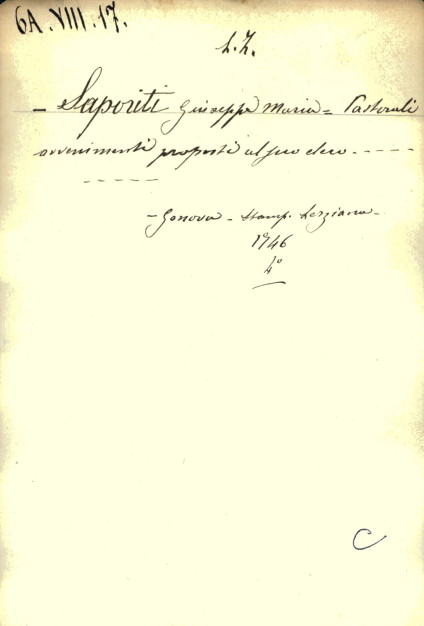 6A.VIII.17.
L.Z.
- Saporiti Giuseppe Maria = Pastorali
avvenimenti proposti al suo clero - - - - -
- - - - - -
- Genova - Stamp. Lerziana -
1746
4°
C